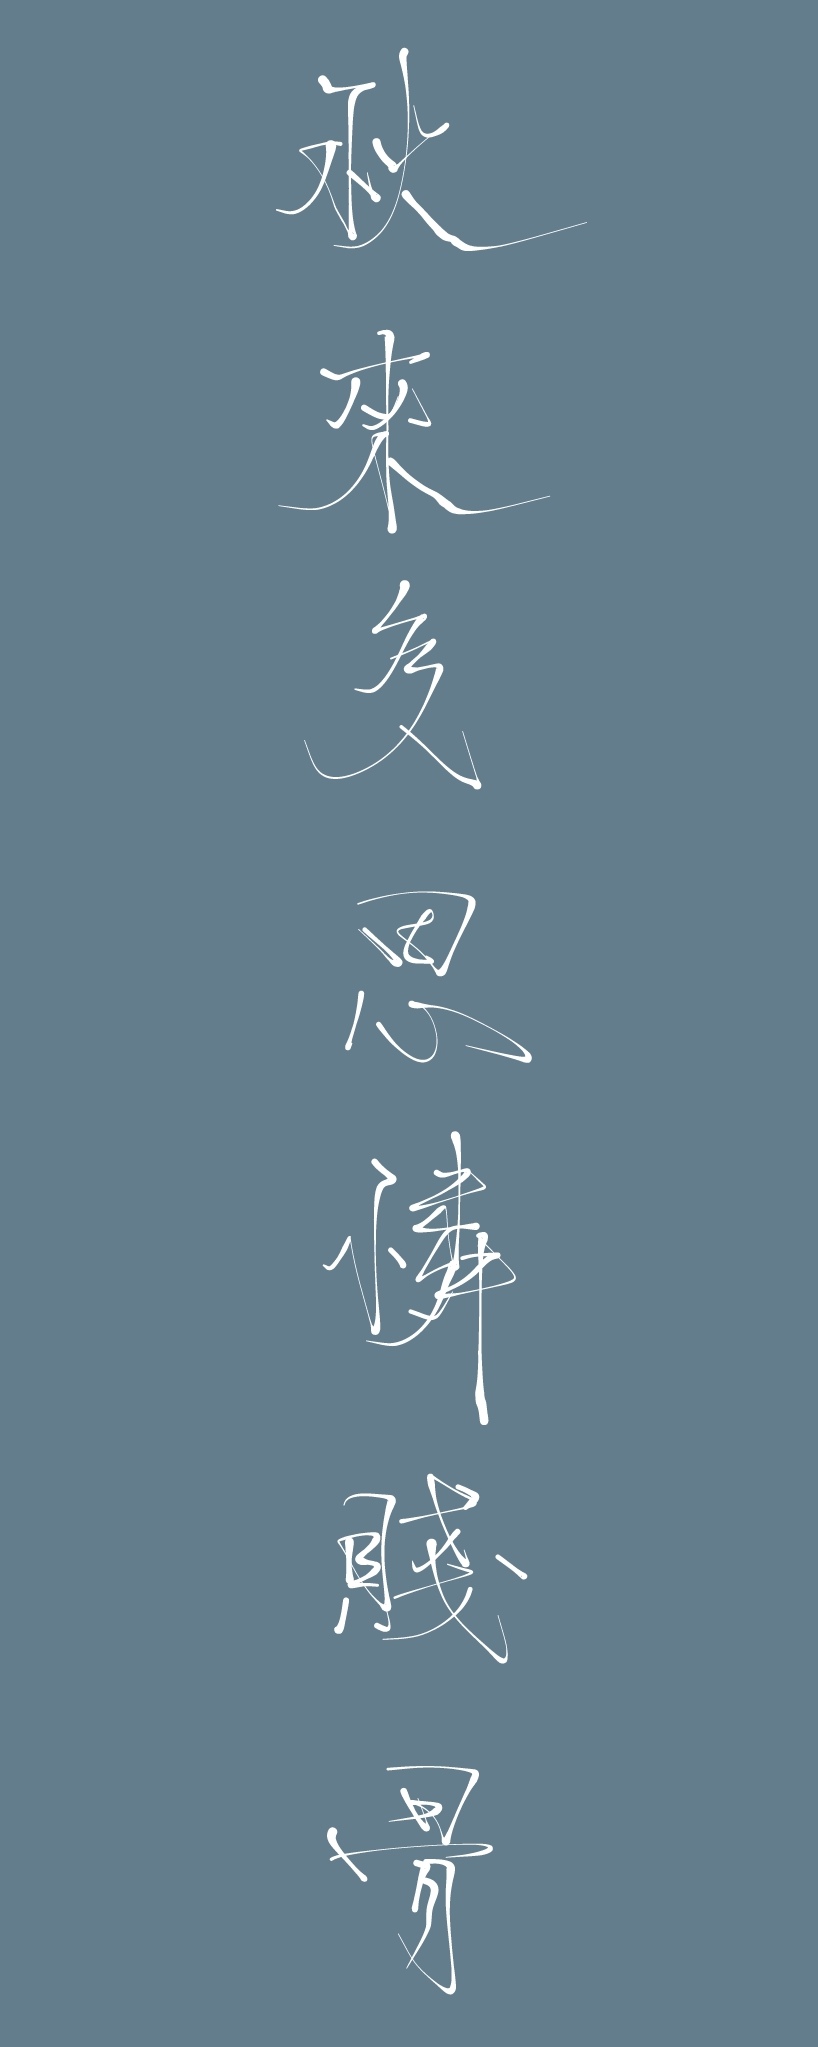 秋來多思憐賤骨